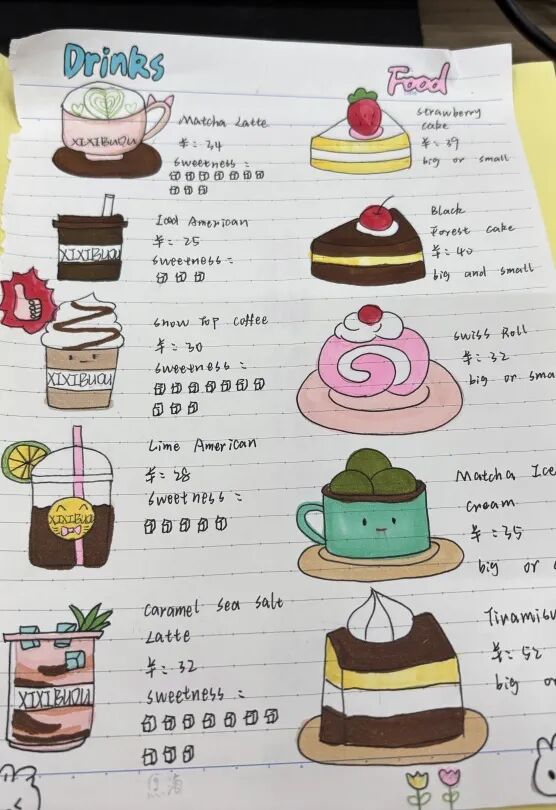 Drinks
XIXIBUOU
Matcha Latte
¥: 34
sweetness:
XIXIBUOU
Iced American
¥: 25
sweetness:
XIXIBUOU
snow Top coffee
¥: 30
sweetness:
XIXIBUOU
Lime American
¥: 28
sweetness:
XIXIBUOU
caramel sea salt
Latte
¥: 32
sweetness:
Food
strawberry
cake
¥: 39
big or small
Black
Forest cake
¥: 40
big and small
swiss Roll
¥: 32
big or sma
Matcha Ice
cream
¥: 35
big or
Tiramisu
¥: 52
big or